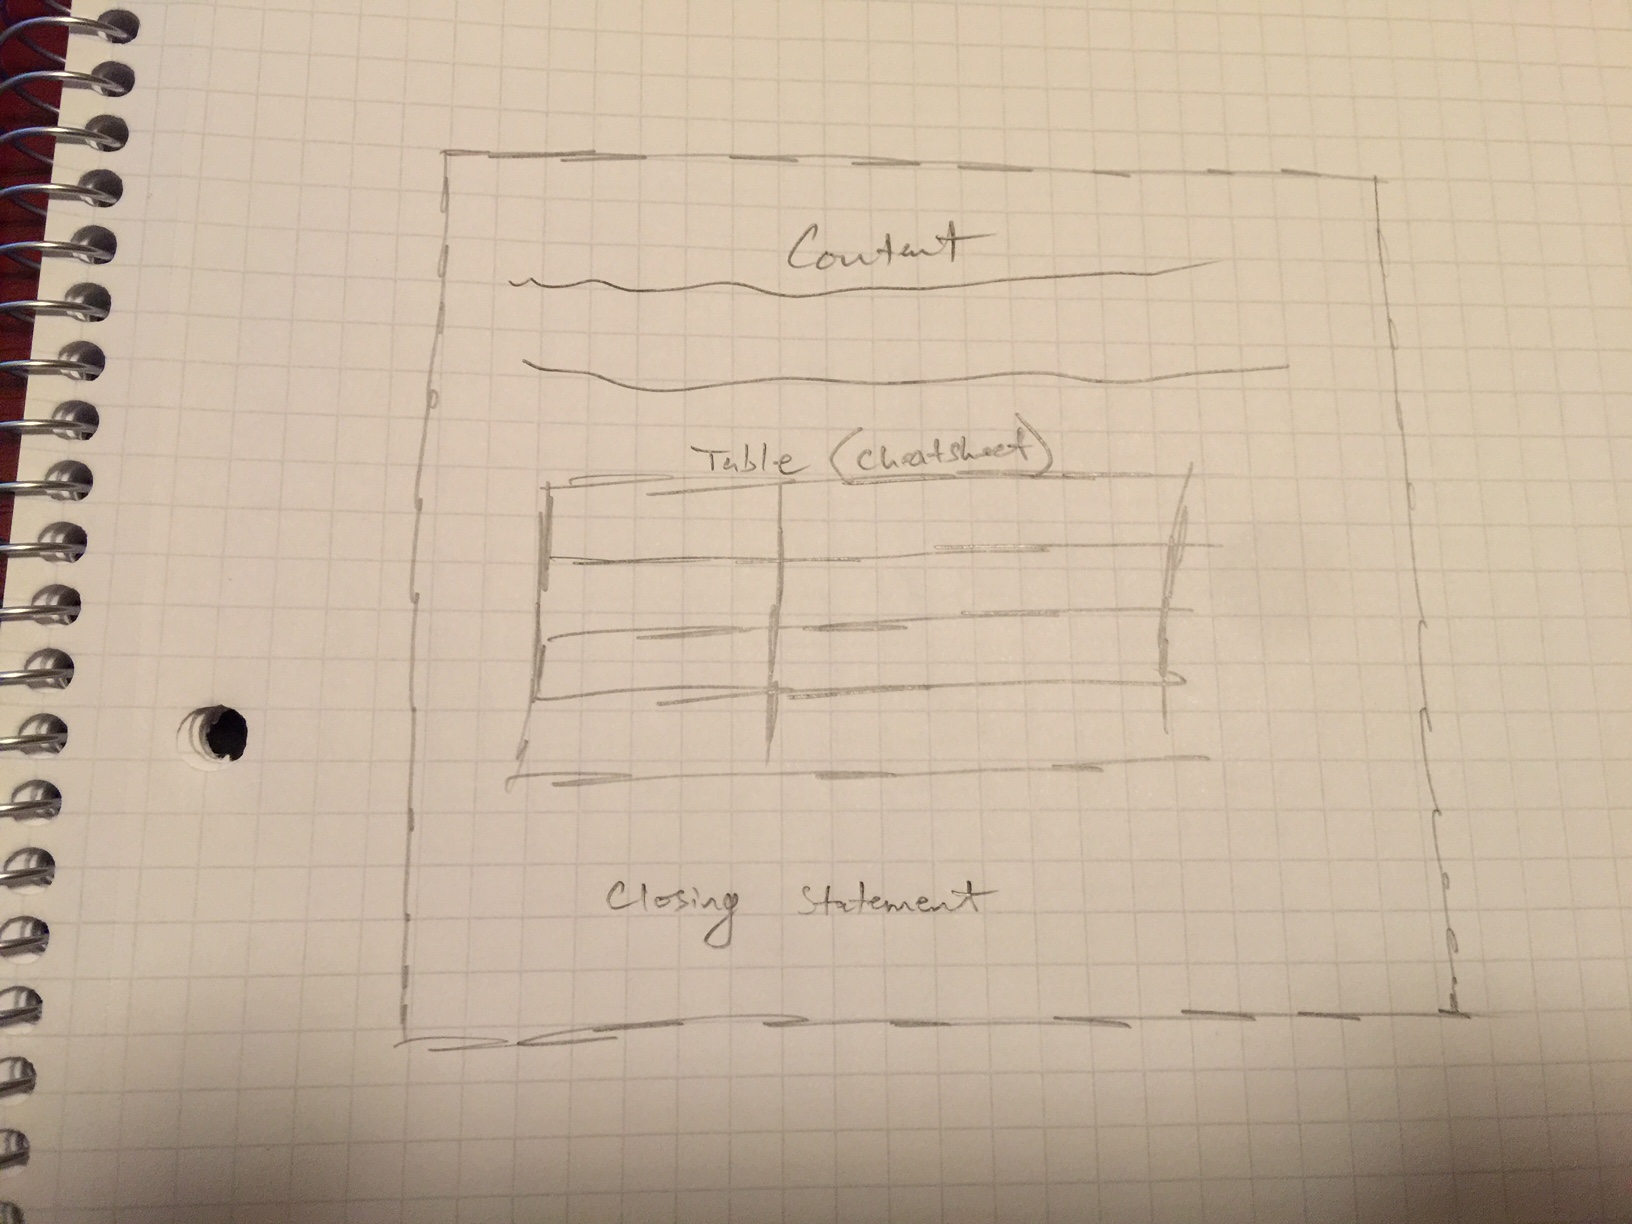 Content
Table (cheatsheet)
Closing Statement